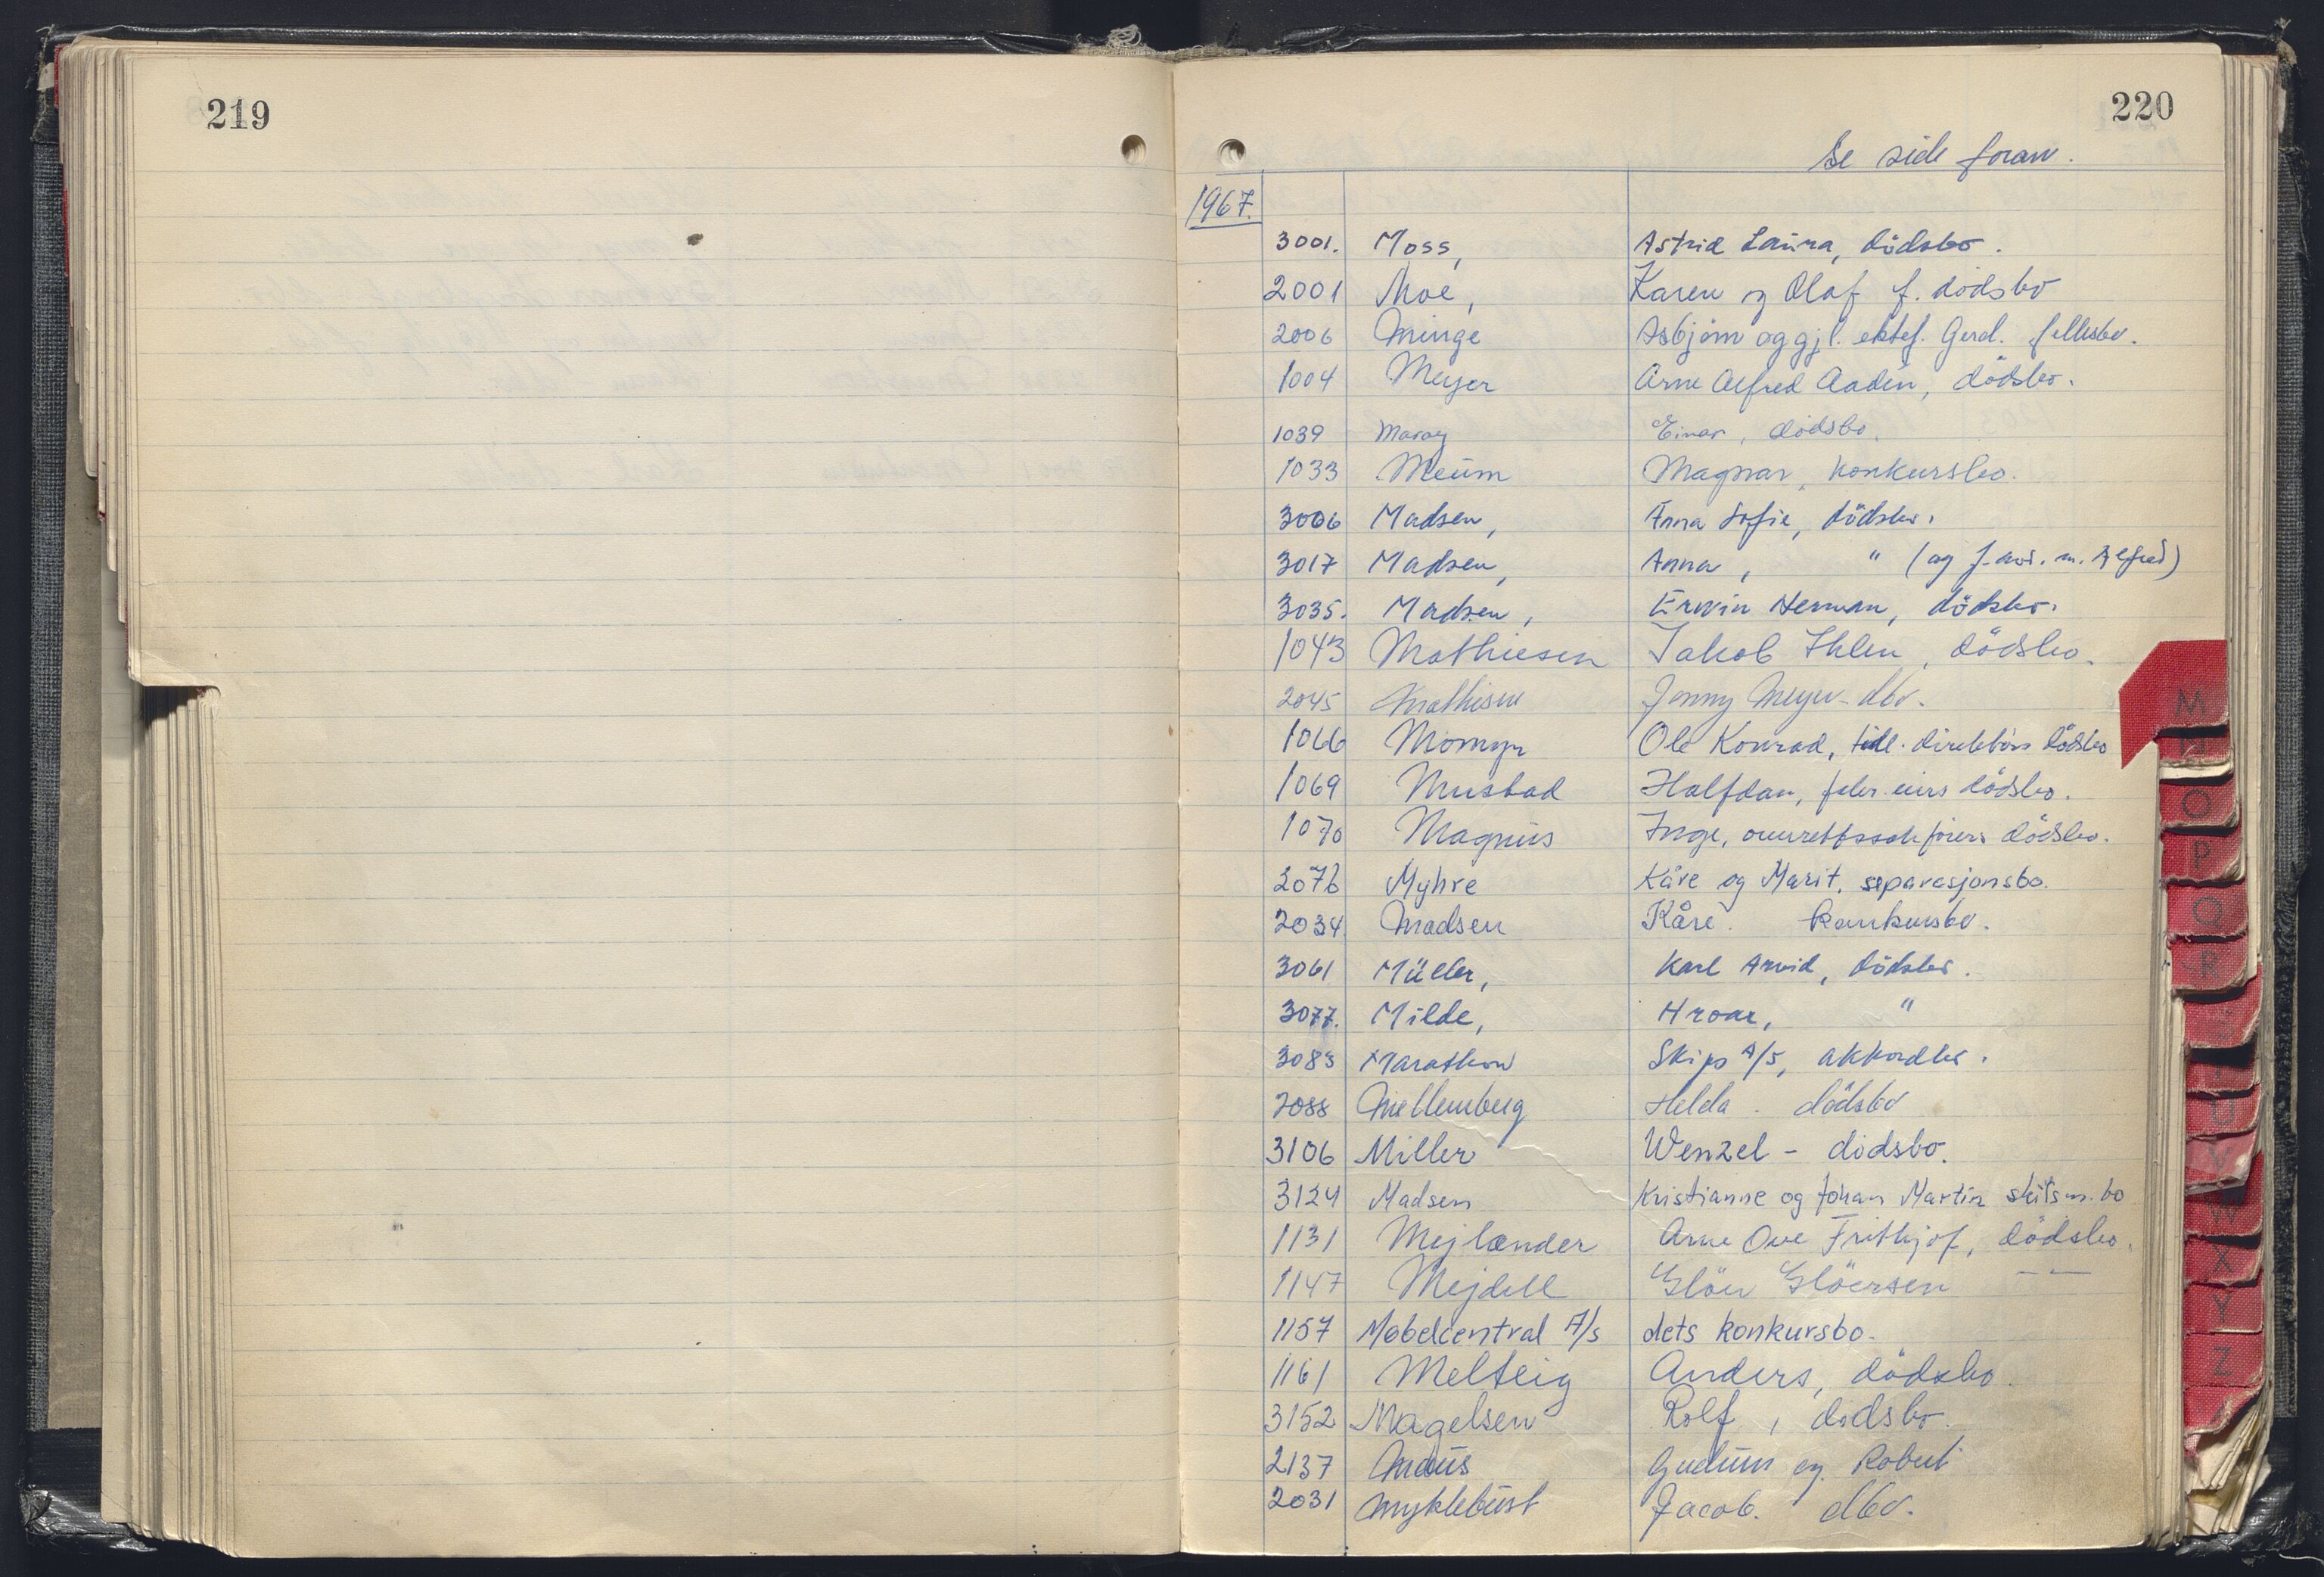 219
220
Se side foran.
1967.
3001. Moss, Astrid Laura, dödsbo.
2001 Moe, Karen og Olaf f. dödsbo
2006 Minge Asbjörn og gjl. ektef. Gerd. fellesbo.
1004 Meyer Arne Alfred Aadin, dödsbo.
1039 Einar, dödsbo.
1033 Meum Magnar, konkursbo.
3006 Madsen, Anna Sofie, dödsbo.
3017 Madsen, Anna, " (og f. avd. m. Alfred)
3035. Madsen, Erwin Herman, dödsbo.
1043 Mathiesen Jakob Ihlen, dödsbo.
2045 Mathisen Jenny Meyer - dbo.
1066 Momyr Ole Konrad, tidl. direktörs dödsbo
1069 Mustad Halfdan, fabr. eiers dödsbo.
1070 Magnus Inge, overrettssakförers dödsbo.
2076 Myhre Kåre og Marit, separasjonsbo.
2034 Madsen Kåre. konkursbo.
3061 Müller, Karl Arvid, dödsbo.
3077. Milde, Hroar, "
3083 Marathon Skips A/S, akkordbo.
2088 Mellemberg Helda. dödsbo
3106 Miller Wenzel - dödsbo.
3124 Madsen Kristianne og Johan Martin skifsm. bo
1131 Mejlænder Arne Ove Frithjof, dödsbo.
1147 Mejdell Glör Glöersen — —
1157 Møbelcentral A/s dets konkursbo.
1161 Melteig Anders, dödsbo.
3152 Magelsen Rolf, dödsbo.
2137 Maus Gudrun og Robert
2031 Myklebust Jacob. dbo.
M
N
O
P
Q
R
S
T
U
V
W
X
Y
Z